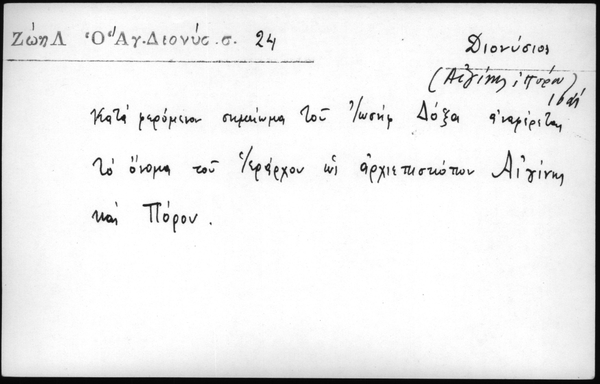 Ζώη Λ Ὁ Ἅγ. Διονύσ. σ. 24
Διονύσιος
(Αἰγίνης, Πόρου)
Κατά φερόμενον σημείωμα τοῦ Ἰωσήφ Δόξα ἀναφέρεται
τό ὄνομα τοῦ Ἱεράρχου ὡς ἀρχιεπισκόπου Αἰγίνης
καί Πόρου.